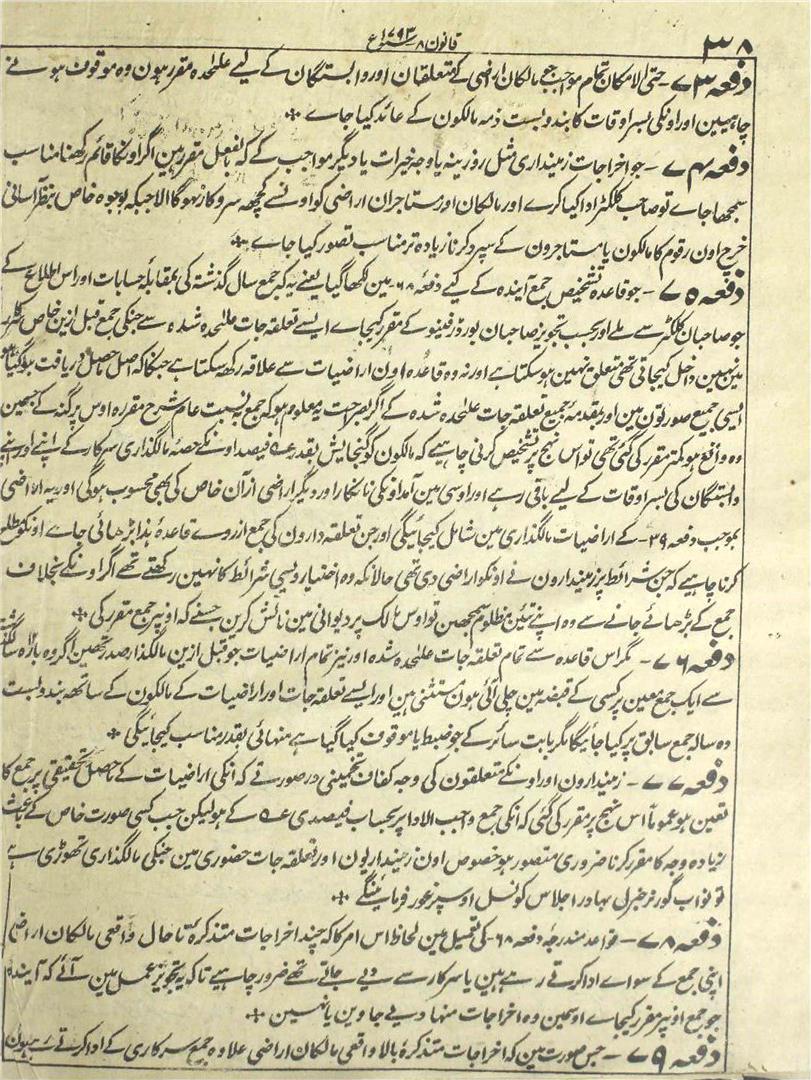 ۳۸
قانون ۸ ۱۷۹۳ ع
دفعہ ۷۳ - حتی الامکان تمام مواجب جو مالکان اراضی کے متعلقان اور وابستگان کے لیے علٰحدہ مقرر ہون وہ موقوف ہونے
چاہییں اور اونکی بسر اوقات کا بندوبست ذمہ مالکون کے عائد کیا جاے
دفعہ ۷۴ - جو اخراجات زمینداری مثل روزینہ یا وجہ خیرات یا دیگر مواجب کے کہ بالفعل مقرر ہین اگر اونکا قائم رکھنا مناسب
سمجھا جاے تو صاحب کلکٹر ادا کیا کرے اور مالکان اور مستاجران اراضی کو اونسے کچھہ سروکار نہوگا الا جبکہ بوجوہ خاص بنظر آسانی
خرچ اون رقوم کا مالکون یا مستاجرون کے سپرد کرنا زیادہ تر مناسب تصور کیا جاے
دفعہ ۷۵ - جو قاعدہ تشخیص جمع آیندہ کے لیے دفعہ ۶۸ مین لکھا گیا یعنے یہ کہ جمع سال گذشتہ کی بمقابلہ حسابات اور اس اطلاع کے
جو صاحبان کلکٹر سے ملے اور بحسب تجویز صاحبان بورڈ رفینو کے مقرر کیجاے ایسے تعلقہ جات علٰحدہ شدہ سے جنکی جمع قبل ازین خاص کلکٹر
مین نہین داخل کیجاتی تھی متعلق نہین ہوسکتا ہے اور نہ وہ قاعدہ اون اراضیات سے علاقہ رکھہ سکتا ہے جنکا کہ اصل ماحصل دریافت ہوگیا
ایسی جمیع صورتون مین اور بمقدمہ جمیع تعلقہ جات علٰحدہ شدہ کے اگر بصراحت یہ معلوم ہو کہ جمع بہ نسبت عام شرح مقررہ اوس پرگنہ کے جسمین
وہ واقع ہو کمتر مقرر کی گئی تھی تو اس نہج پر تشخیص کرنی چاہیے کہ مالکون کو گنجایش بقدر عـہ فیصد اونکے حصہ مالگذاری سرکار کے اپنے اور اپنے
وابستگان کی بسر اوقات کے لیے باقی رہے اور اوسی مین آمد اونکی نانکار اور دیگر اراضی از آن خاص کی بھی محسوب ہوگی اور یہ اراضی
بموجب دفعہ ۳۹ - کے اراضیات مالگذاری مین شامل کیجائیگی اور جن تعلقہ دارون کی جمع از روے قاعدہ ہذا بڑھائی جاے اونکو مطلع
کرنا چاہیے کہ جن شرائط پر زمیندارون نے اونکو اراضی دی تھی حالانکہ وہ اختیار ویسی شرائط کا نہین رکھتے تھے اگر اونکے بخلاف
جمع کے بڑھائے جانے سے وہ اپنے تئین مظلوم سمجھین تو اوس مالک پر دیوانی مین نالش کرین جسنے کہ اوسپر جمع مقرر کی
دفعہ ۷۶ - مگر اس قاعدہ سے تمام تعلقہ جات علٰحدہ شدہ اور نیز تمام اراضیات جو قبل ازین مالگذار صدر تھین اگر وہ بارہ سال گذشتہ
سے ایک جمع معین پر کسی کے قبضہ مین چلی آئی ہون مستثنٰی ہین اور ایسے تعلقہ جات اور اراضیات کے مالکون کے ساتھہ بندوبست
دہ سالہ جمع سابق پر کیا جائیگا مگر بابت سائر کے جو ضبط یا موقوف کیا گیا ہے منہائی بقدر مناسب کیجائیگی
دفعہ ۷۷ - زمیندارون اور اونکے متعلقون کی وجہ کفاف تخمینی درصورتے کہ انکی اراضیات کے ماحصل تحقیقی پر جمع کا
تعین ہو عموماً اس نہج پر مقرر کی گئی کہ انکی جمع واجب الادا پر بحساب فیصدی عـہ کے ہو لیکن جب کسی صورت خاص کے باعث
زیادہ وجہ کا مقرر کرنا ضروری متصور ہو خصوص اون زمینداریون اور تعلقہ جات حضوری مین جنکی مالگذاری تھوڑی ہے
تو نواب گورنر جنرل بہادر اجلاس کونسل اوسپر غور فرماینگے
دفعہ ۷۸ - قواعد مندرجہ دفعہ ۶۸ - کی تعمیل مین لحاظ اس امر کا کہ چند اخراجات متذکرہ تا حال واقعی مالکان اراضی
اپنی جمع کے سواے ادا کرتے رہے ہین یا سرکار سے دیے جاتے تھے ضرور چاہیے تاکہ یہ تجویز عمل مین آئے کہ آیندہ
جو جمع اوسپر مقرر کیجاے اوسمین وہ اخراجات منہا دیے جاوین یا نہین
دفعہ ۷۹ - جس صورت مین کہ اخراجات متذکرہ بالا واقعی مالکان اراضی علاوہ جمع سرکاری کے ادا کرتے رہے ہون